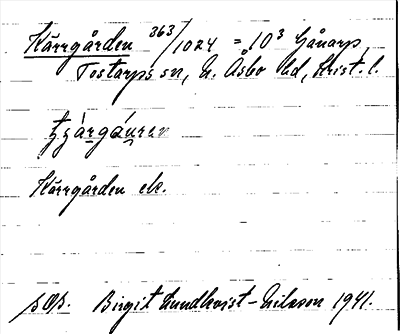 Kärrgården 363/1024 = 10³ Gånarp,
Tostarps sn, N. Åsbo hd, Krist. l.
Kärrgården ek.
Birgit Lundkvist-Nilsson 1941.